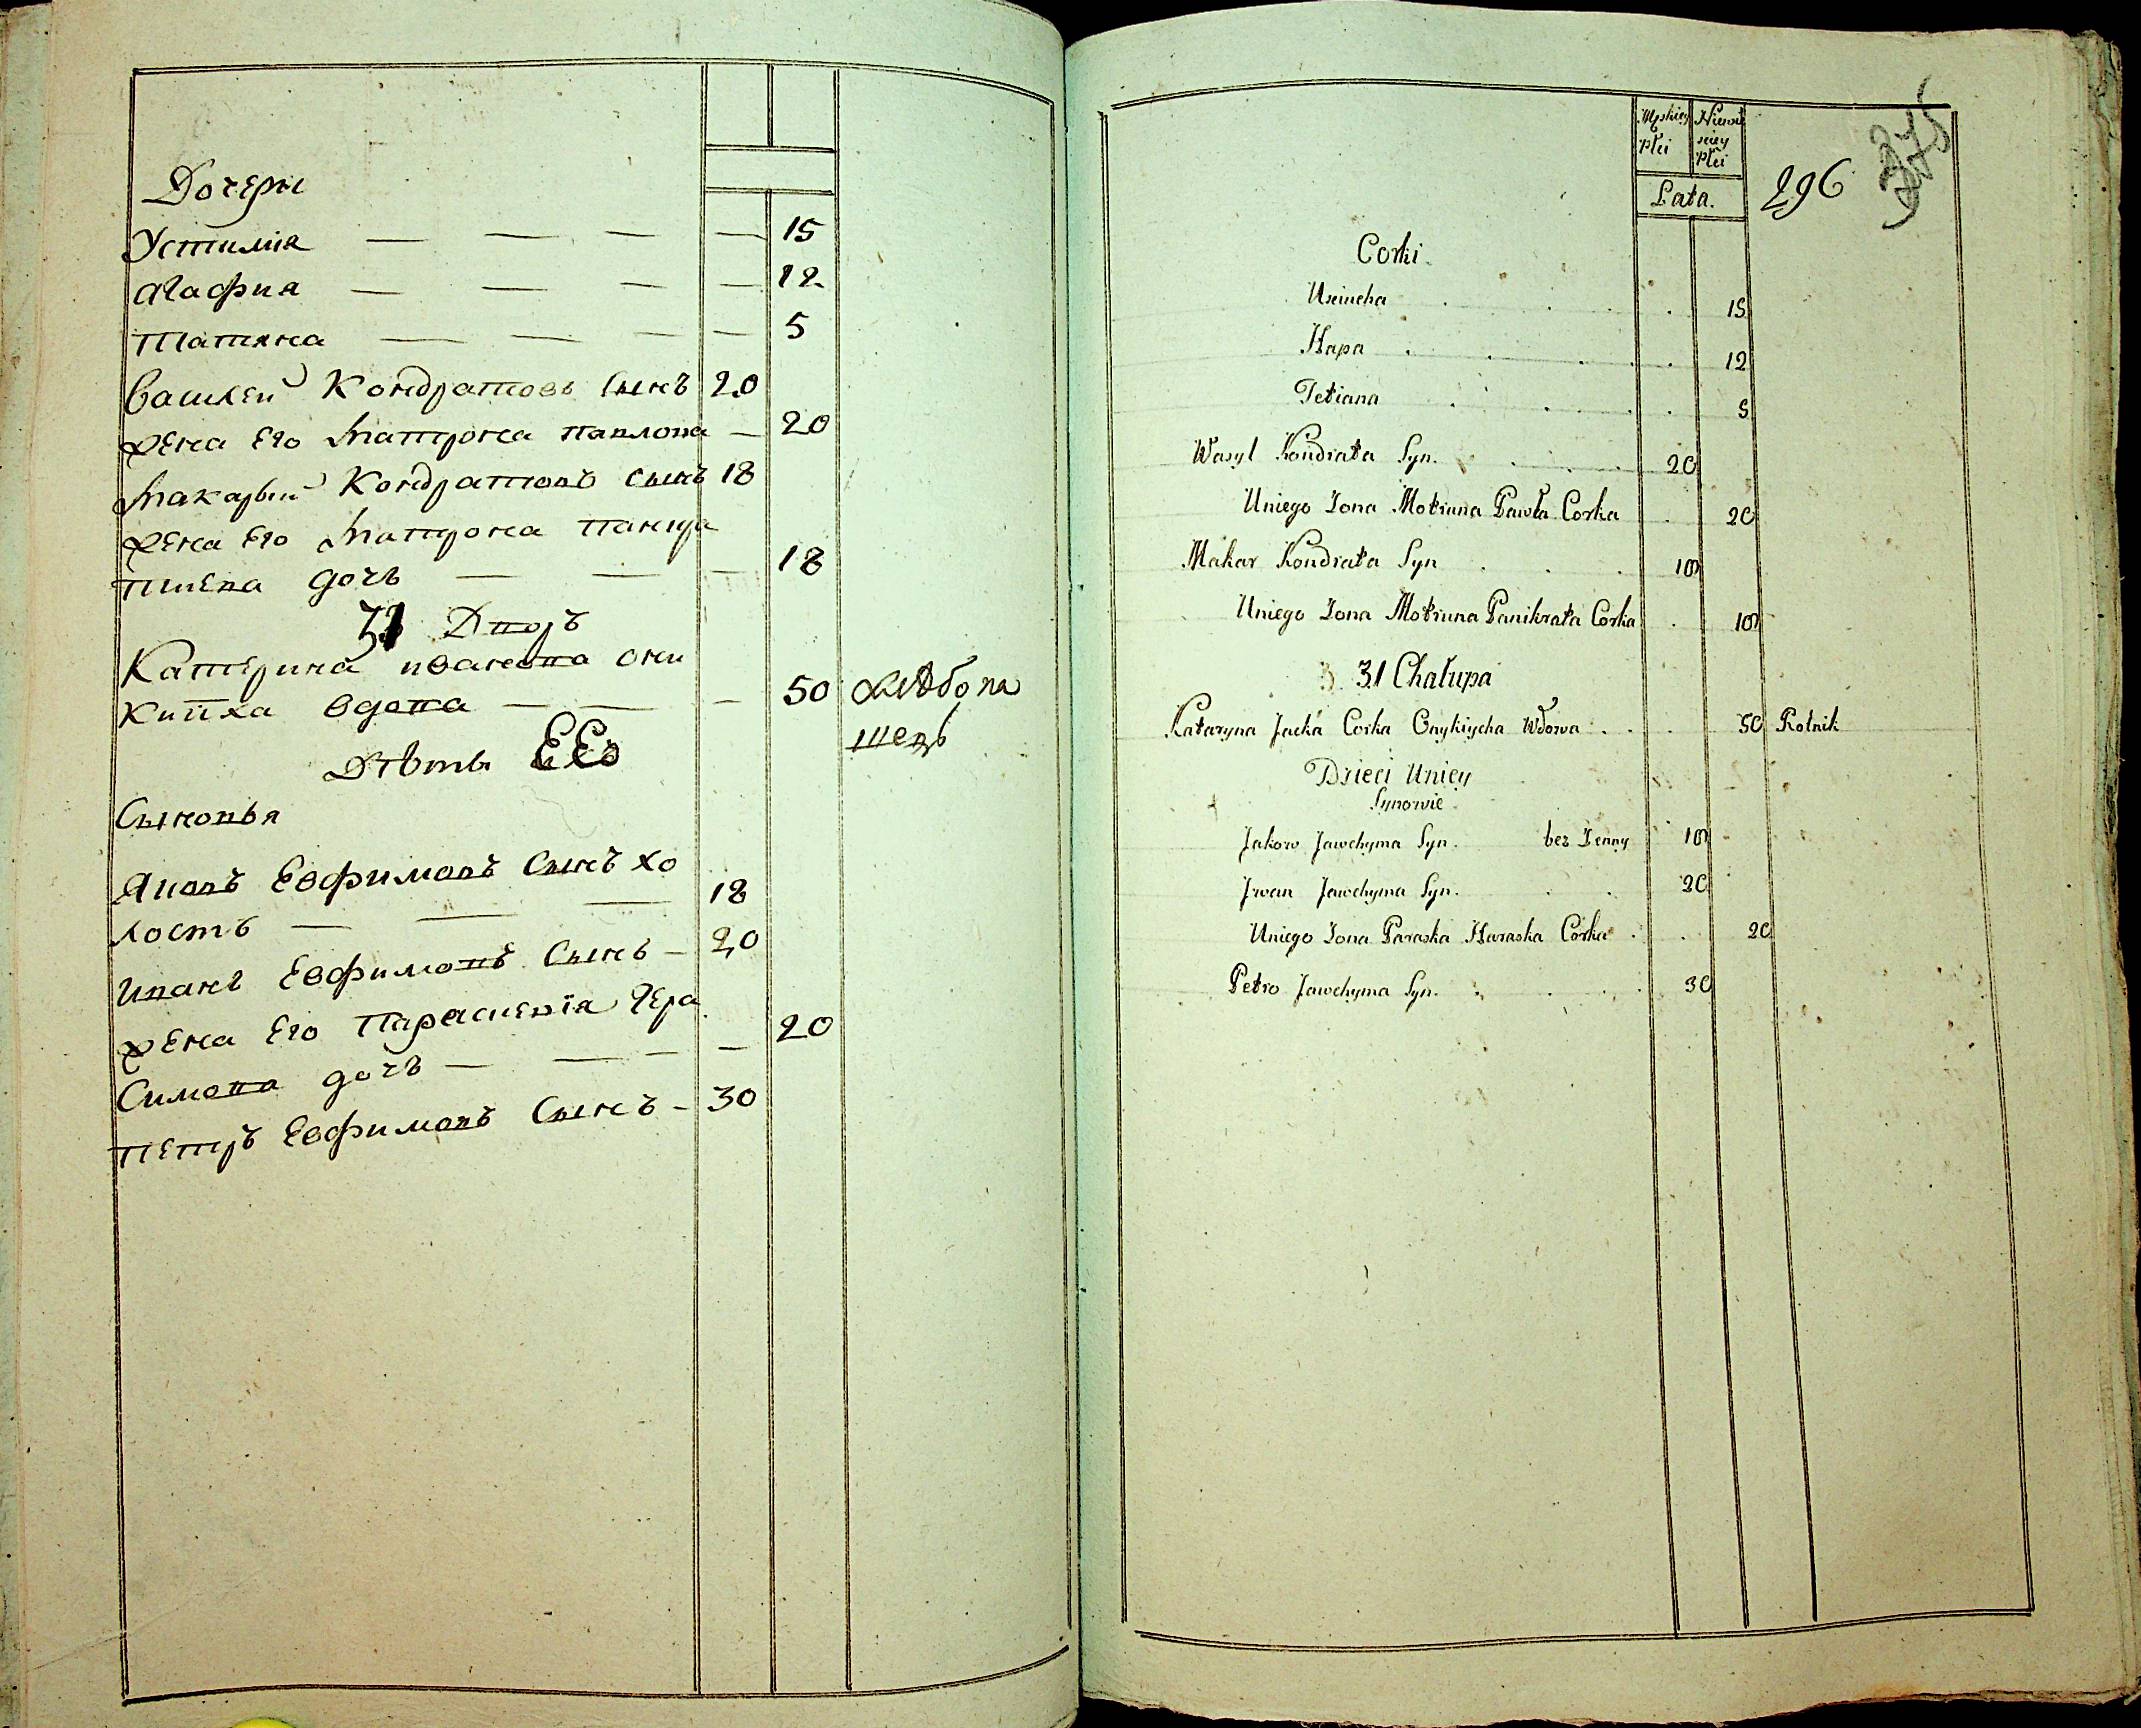 Дочери
Устимiя — — — — 15
Агафия — — — — 12
Татяна — — — — 5
Василей Кондратовъ Сынъ 20
жена Его Матрона павлова — 20
Макарвий Кондратовъ сынъ 18
жена Его Матрона панкра
тиева дочь — — — 18
31 Дворъ
Катерина ивановна они
кииха вдова — — — 50 хлѣбопа
шецъ
Дѣти ЕЕ
Сыновья
Яковъ Евфимовъ Сынъ хо
лостъ — — — 18
иванъ Евфимовъ Сынъ — 20
жена Его Параскевiя Гера
Симова дочь — — — — 20
петръ Евфимовъ Сынъ — 30
Męskiey Płci
Niewieściey Płci
Lata.
296
Corki
Uscincha 15
Hapa 12
Tetiana 5
Wasyl Kondrata Syn. 20
Uniego Zona Motruna Pawła Corka 20
Makar Kondrata Syn 18
Uniego Zona Motruna Panikrata Corka 18
31 Chałupa
Kataryna Jacka Corka Onykiycha Wdowa 50 Rolnik
Dzieci Unicy
Synowie
Jakow Jawchyma Syn. bez Zenny 18
Jwan Jawchyma Syn. 20
Uniego Zona Paraska Haraska Corka 20
Petro Jawchyma Syn. 30